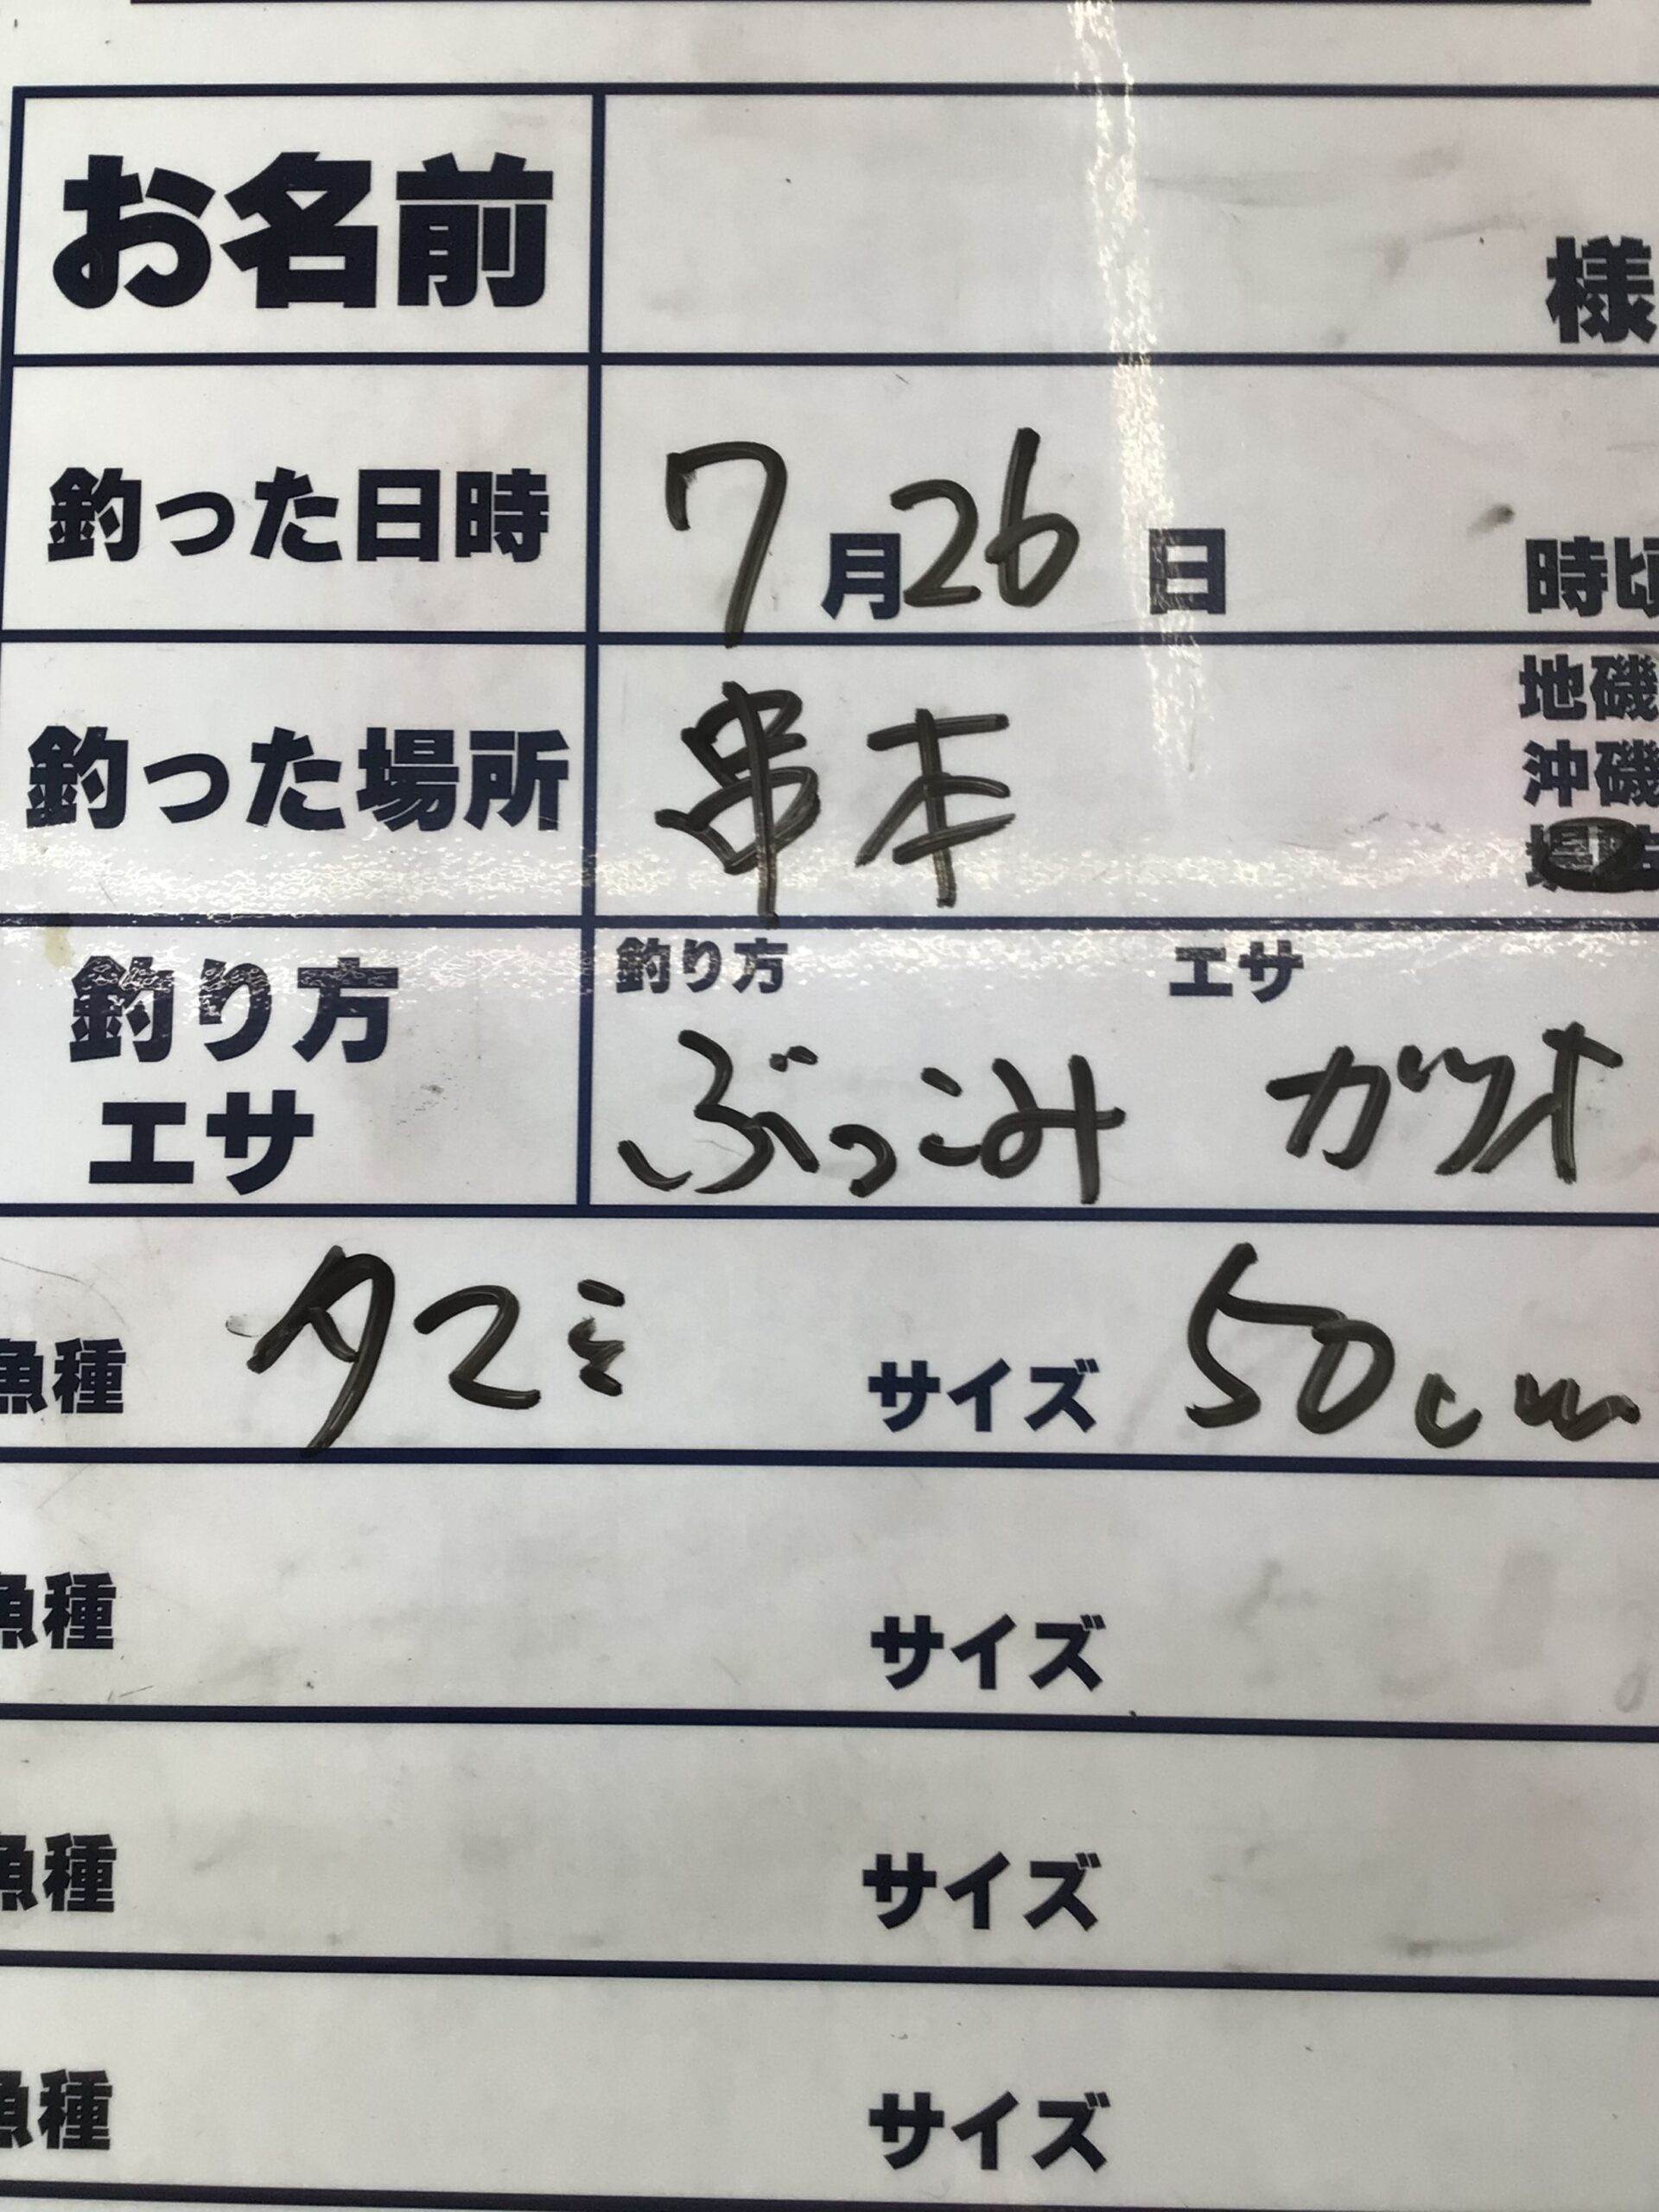 お名前 様
釣った日時 7月26日 時頃
釣った場所 串本 地磯
沖磯
釣り方 エサ
釣り方
エサ
ぶっこみ カツオ
魚種 タマミ サイズ 50cm
魚種 サイズ
魚種 サイズ
魚種 サイズ